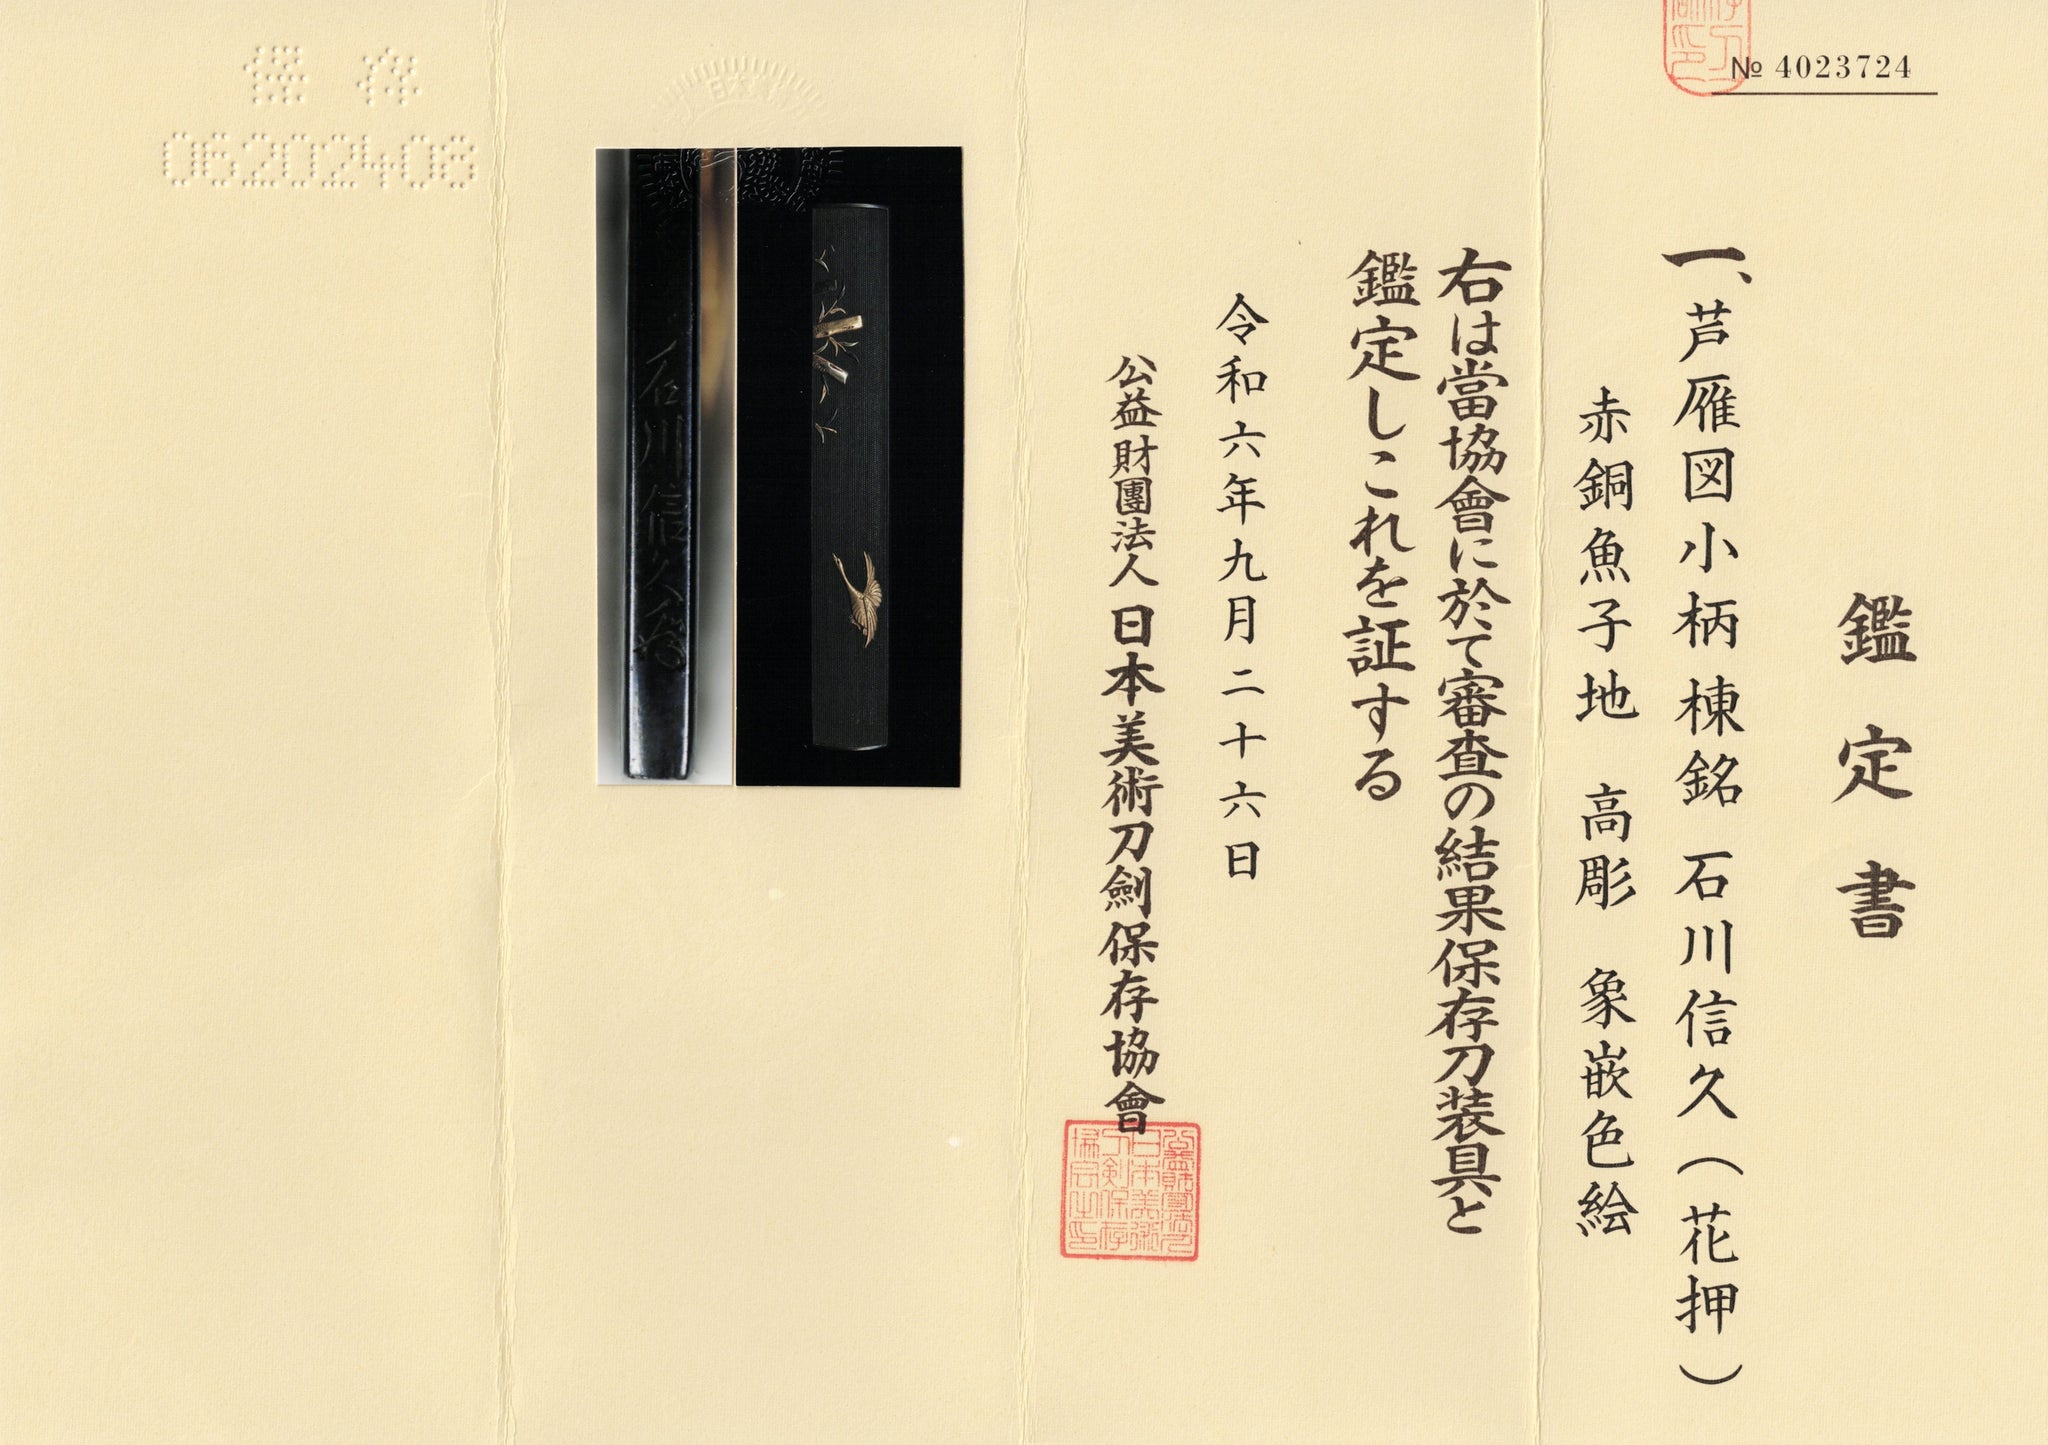 № 4023724
鑑定書
一、芦雁図小柄 棟銘 石川信久(花押)
赤銅魚子地 高彫 象嵌色絵
右は當協會に於て審査の結果保存刀装具と
鑑定しこれを証する
令和六年九月二十六日
公益財團法人 日本美術刀劍保存協會
石川信久
保存
06202408